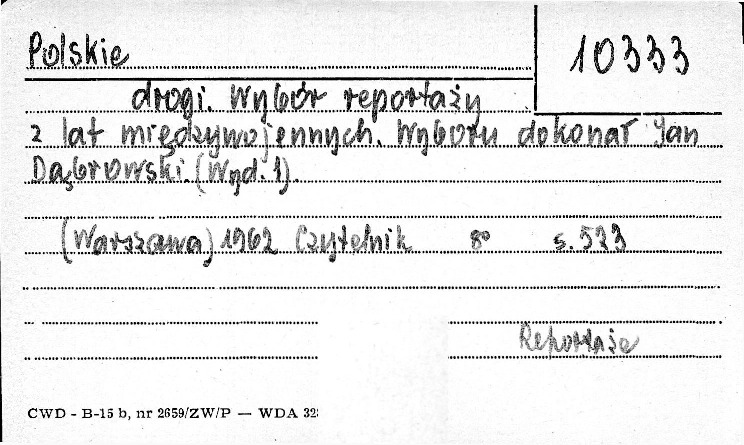 Polskie
10333
drogi. Wybór reportaży
z lat międzywojennych. Wyboru dokonał Jan
Dąbrowski. (Wyd. 1).
(Warszawa) 1962 Czytelnik 8° s. 573
Reportaże
CWD - B-15 b, nr 2659/ZW/P — WDA 323